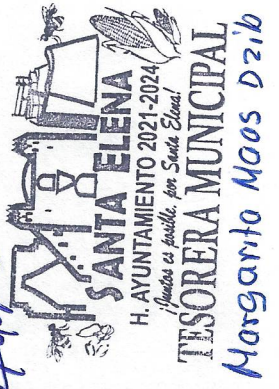 SANTA ELENA
H. AYUNTAMIENTO 2021-2024
¡Juntos es posible, por Santa Elena!
TESORERA MUNICIPAL
Margarita Moos Dzib